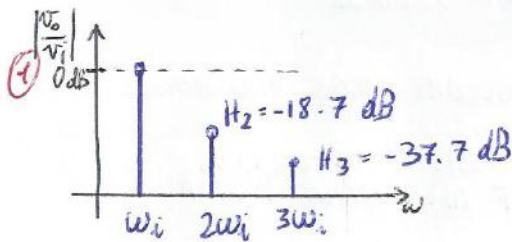 |v₀/vᵢ|
(1) 0dB
H₂ = -18.7 dB
H₃ = -37.7 dB
ωᵢ 2ωᵢ 3ωᵢ ω